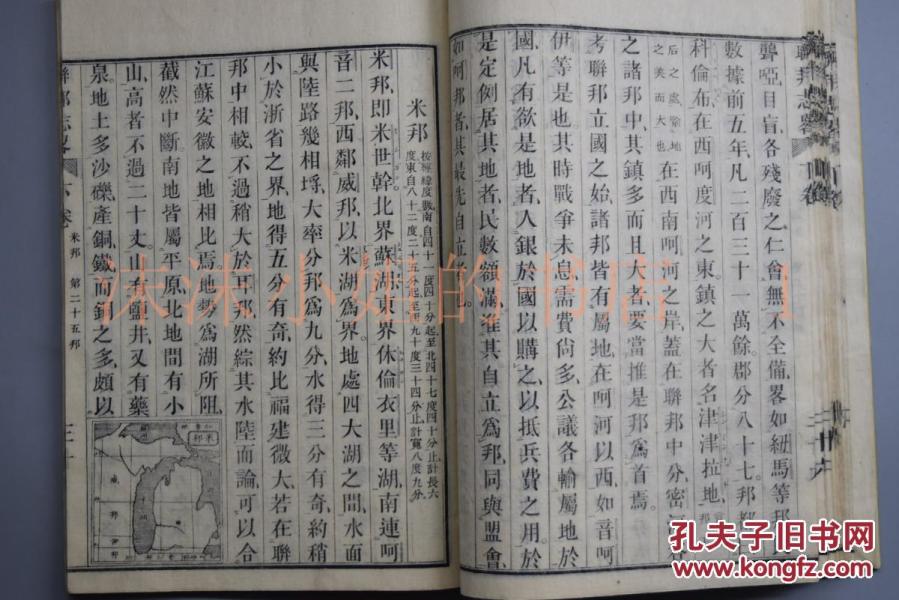 聾啞目盲、各殘廢之仁會、無不全備、畧如紐馬等邦、
數據前五年、凡二百三十一萬餘、郡分八十七、邦都
科倫布、在西呵度河之東、鎮之大者、名津津拉地、
后之處、除地之美而大也
在西南呵河之岸、蓋在聯邦中分、密河
之諸邦中、其鎮多而且大者、要當推是邦爲首焉、
考聯邦立國之始、諸邦皆有屬地、在呵河以西、如音呵
伊等是也、其時戰爭未息、需費尙多、公議各輸屬地於
國、凡有欲是地者、人銀於國以購之、以抵兵費之用、於
是定例、居其地者、民數額滿、准其自立爲邦、同與盟會、
如呵邦者、其最先自立
聯邦志畧
下卷
米邦 第二十五邦
米邦
按經緯度數、南自四十一度四十分起、至北四十七度四十分止、計長六
度、東自八十二度二十五分起、至西九十度三十四分止、計寬八度九分
米邦、卽米世幹、北界蘇湖、東界休倫衣里等湖、南連呵
音二邦、西鄰威邦、以米湖爲界、地處四大湖之間、水面
與陸路幾相埒、大率分邦爲九分、水得三分有奇、約稍
小於浙省之界、地得五分有奇、約比福建微大、若在聯
邦中相較、不過稍大於 邦、然綜其水陸而論、可以合
江蘇安徽之地相比焉、地勢爲湖所阻、
截然中斷、南地皆屬平原、北地間有小
山、高者不過二十丈、山有鹽井、又有藥
泉、地土多沙礫、產銅鐵、而銅之多、頗以
米邦
威邦
沐沐小姐的书店
孔夫子旧书网
www.kongfz.com